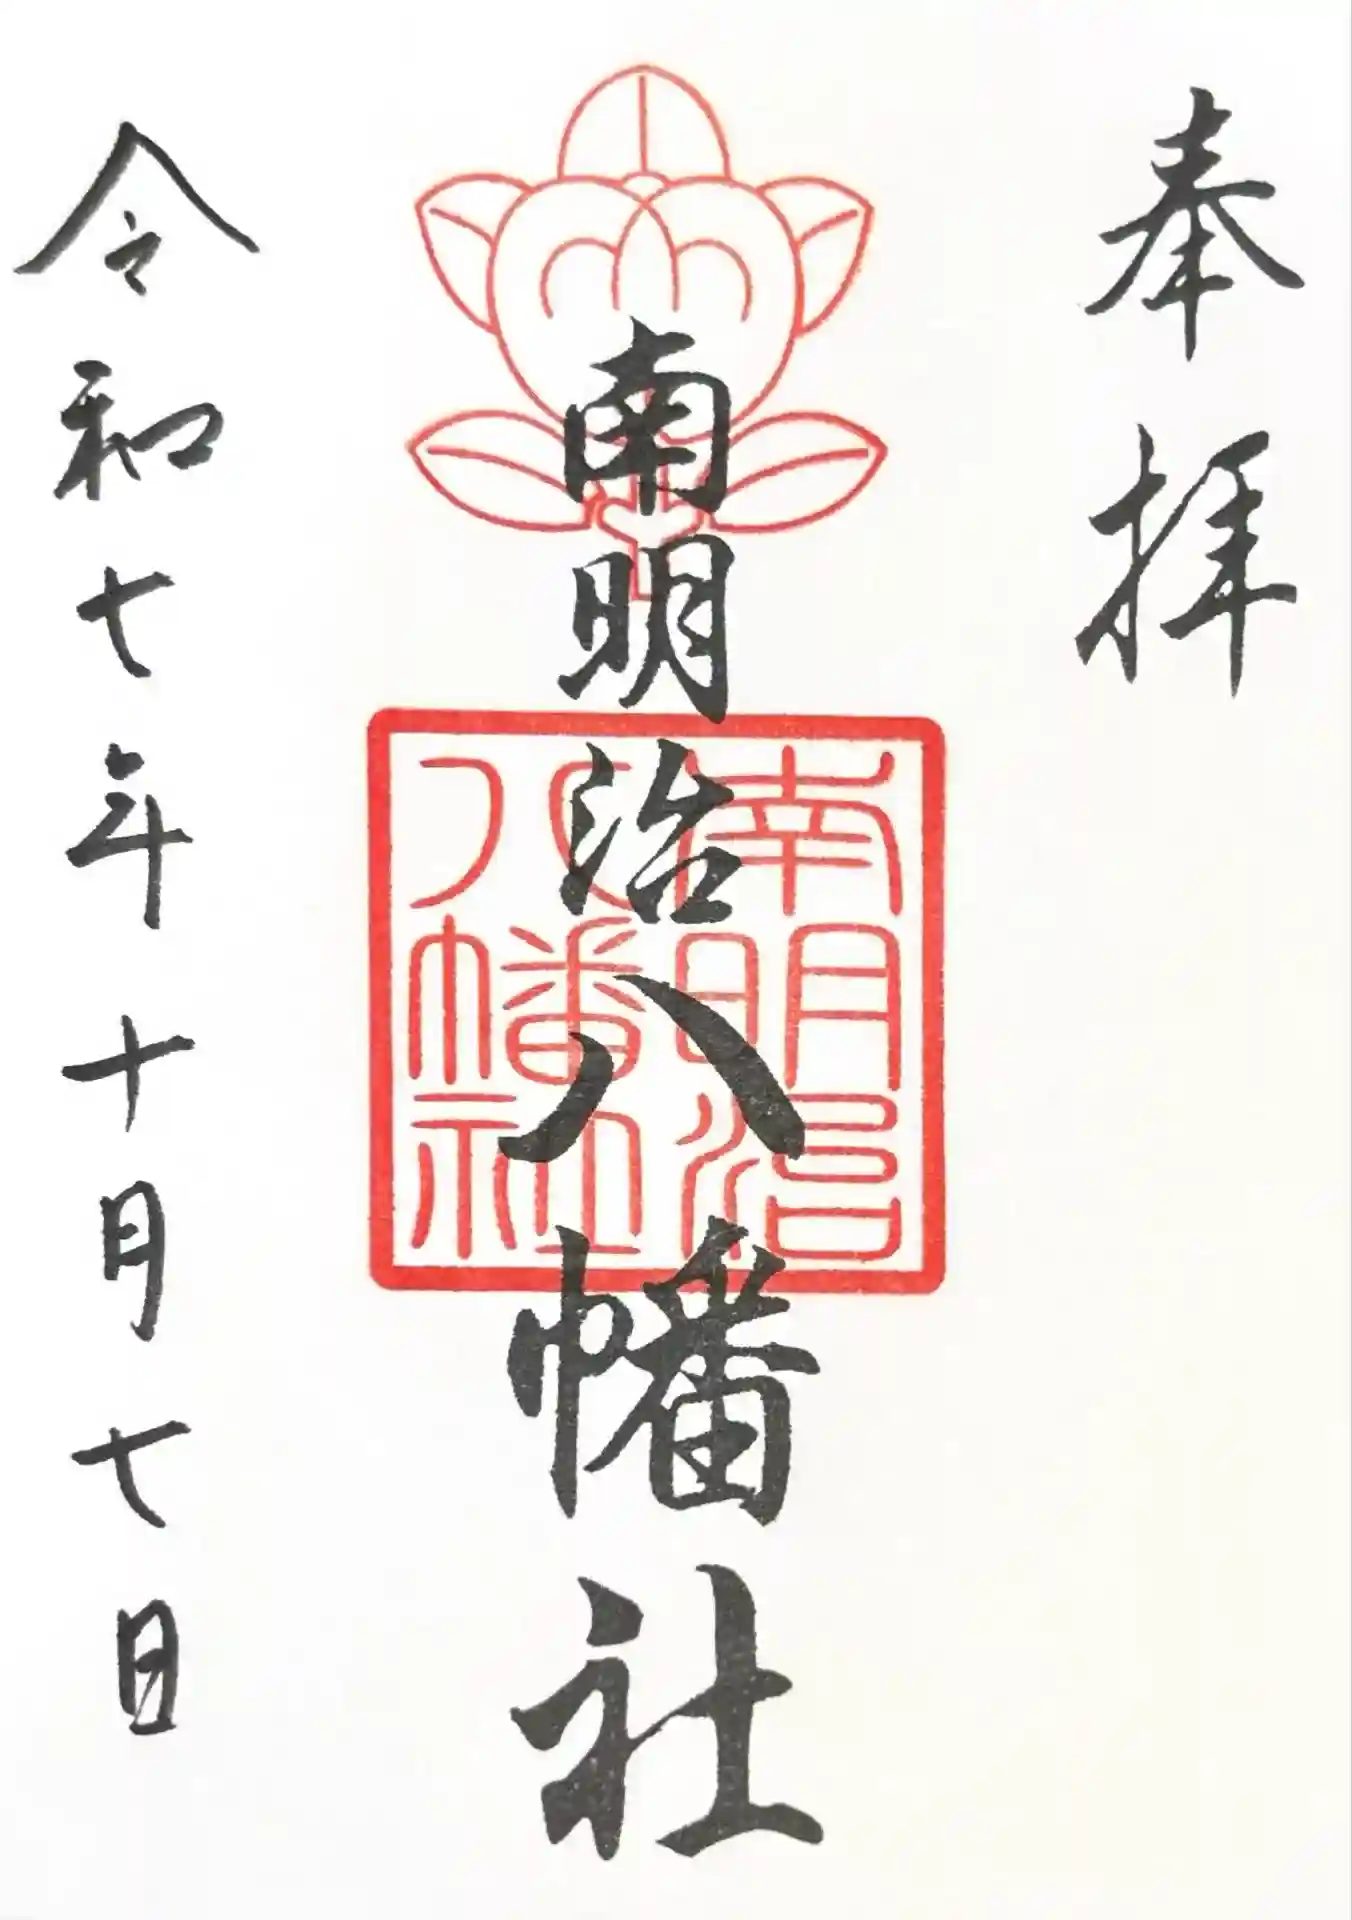 奉拝
南明治八幡社
南明治
八幡社
令和七年十月七日